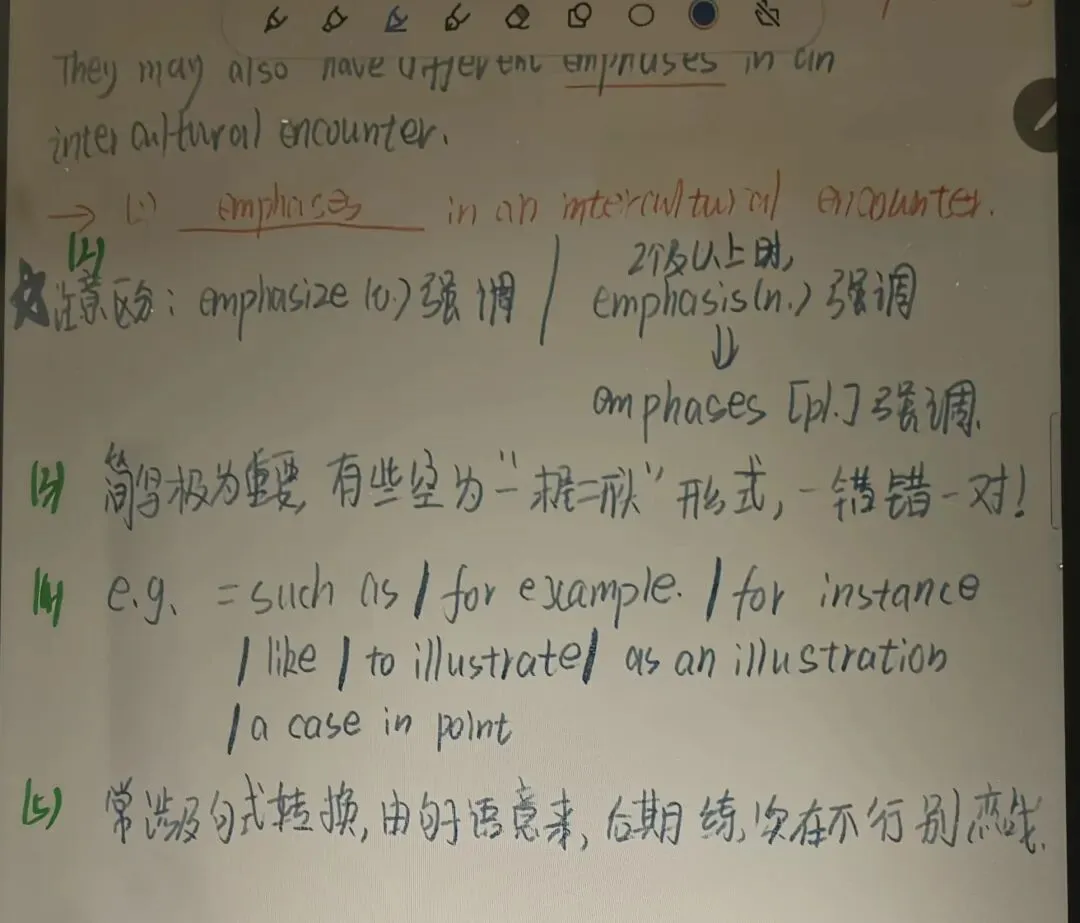 They may also have different emphases in an
intercultural encounter.
→ (1) emphases in an intercultural encounter.
(2)
2个及以上时,
注意区分: emphasize (v.) 强调 / emphasis(n.) 强调
⇓
emphases [pl.] 强调.
(3) 简写极为重要, 有些空为“一拖二形” 形式, 一错错一对!
(4) e.g. = such as / for example. / for instance
/ like / to illustrate / as an illustration
/ a case in point
(5) 常涉及句式转换, 由句子语意来, 后期练, 实在不行别恋战.